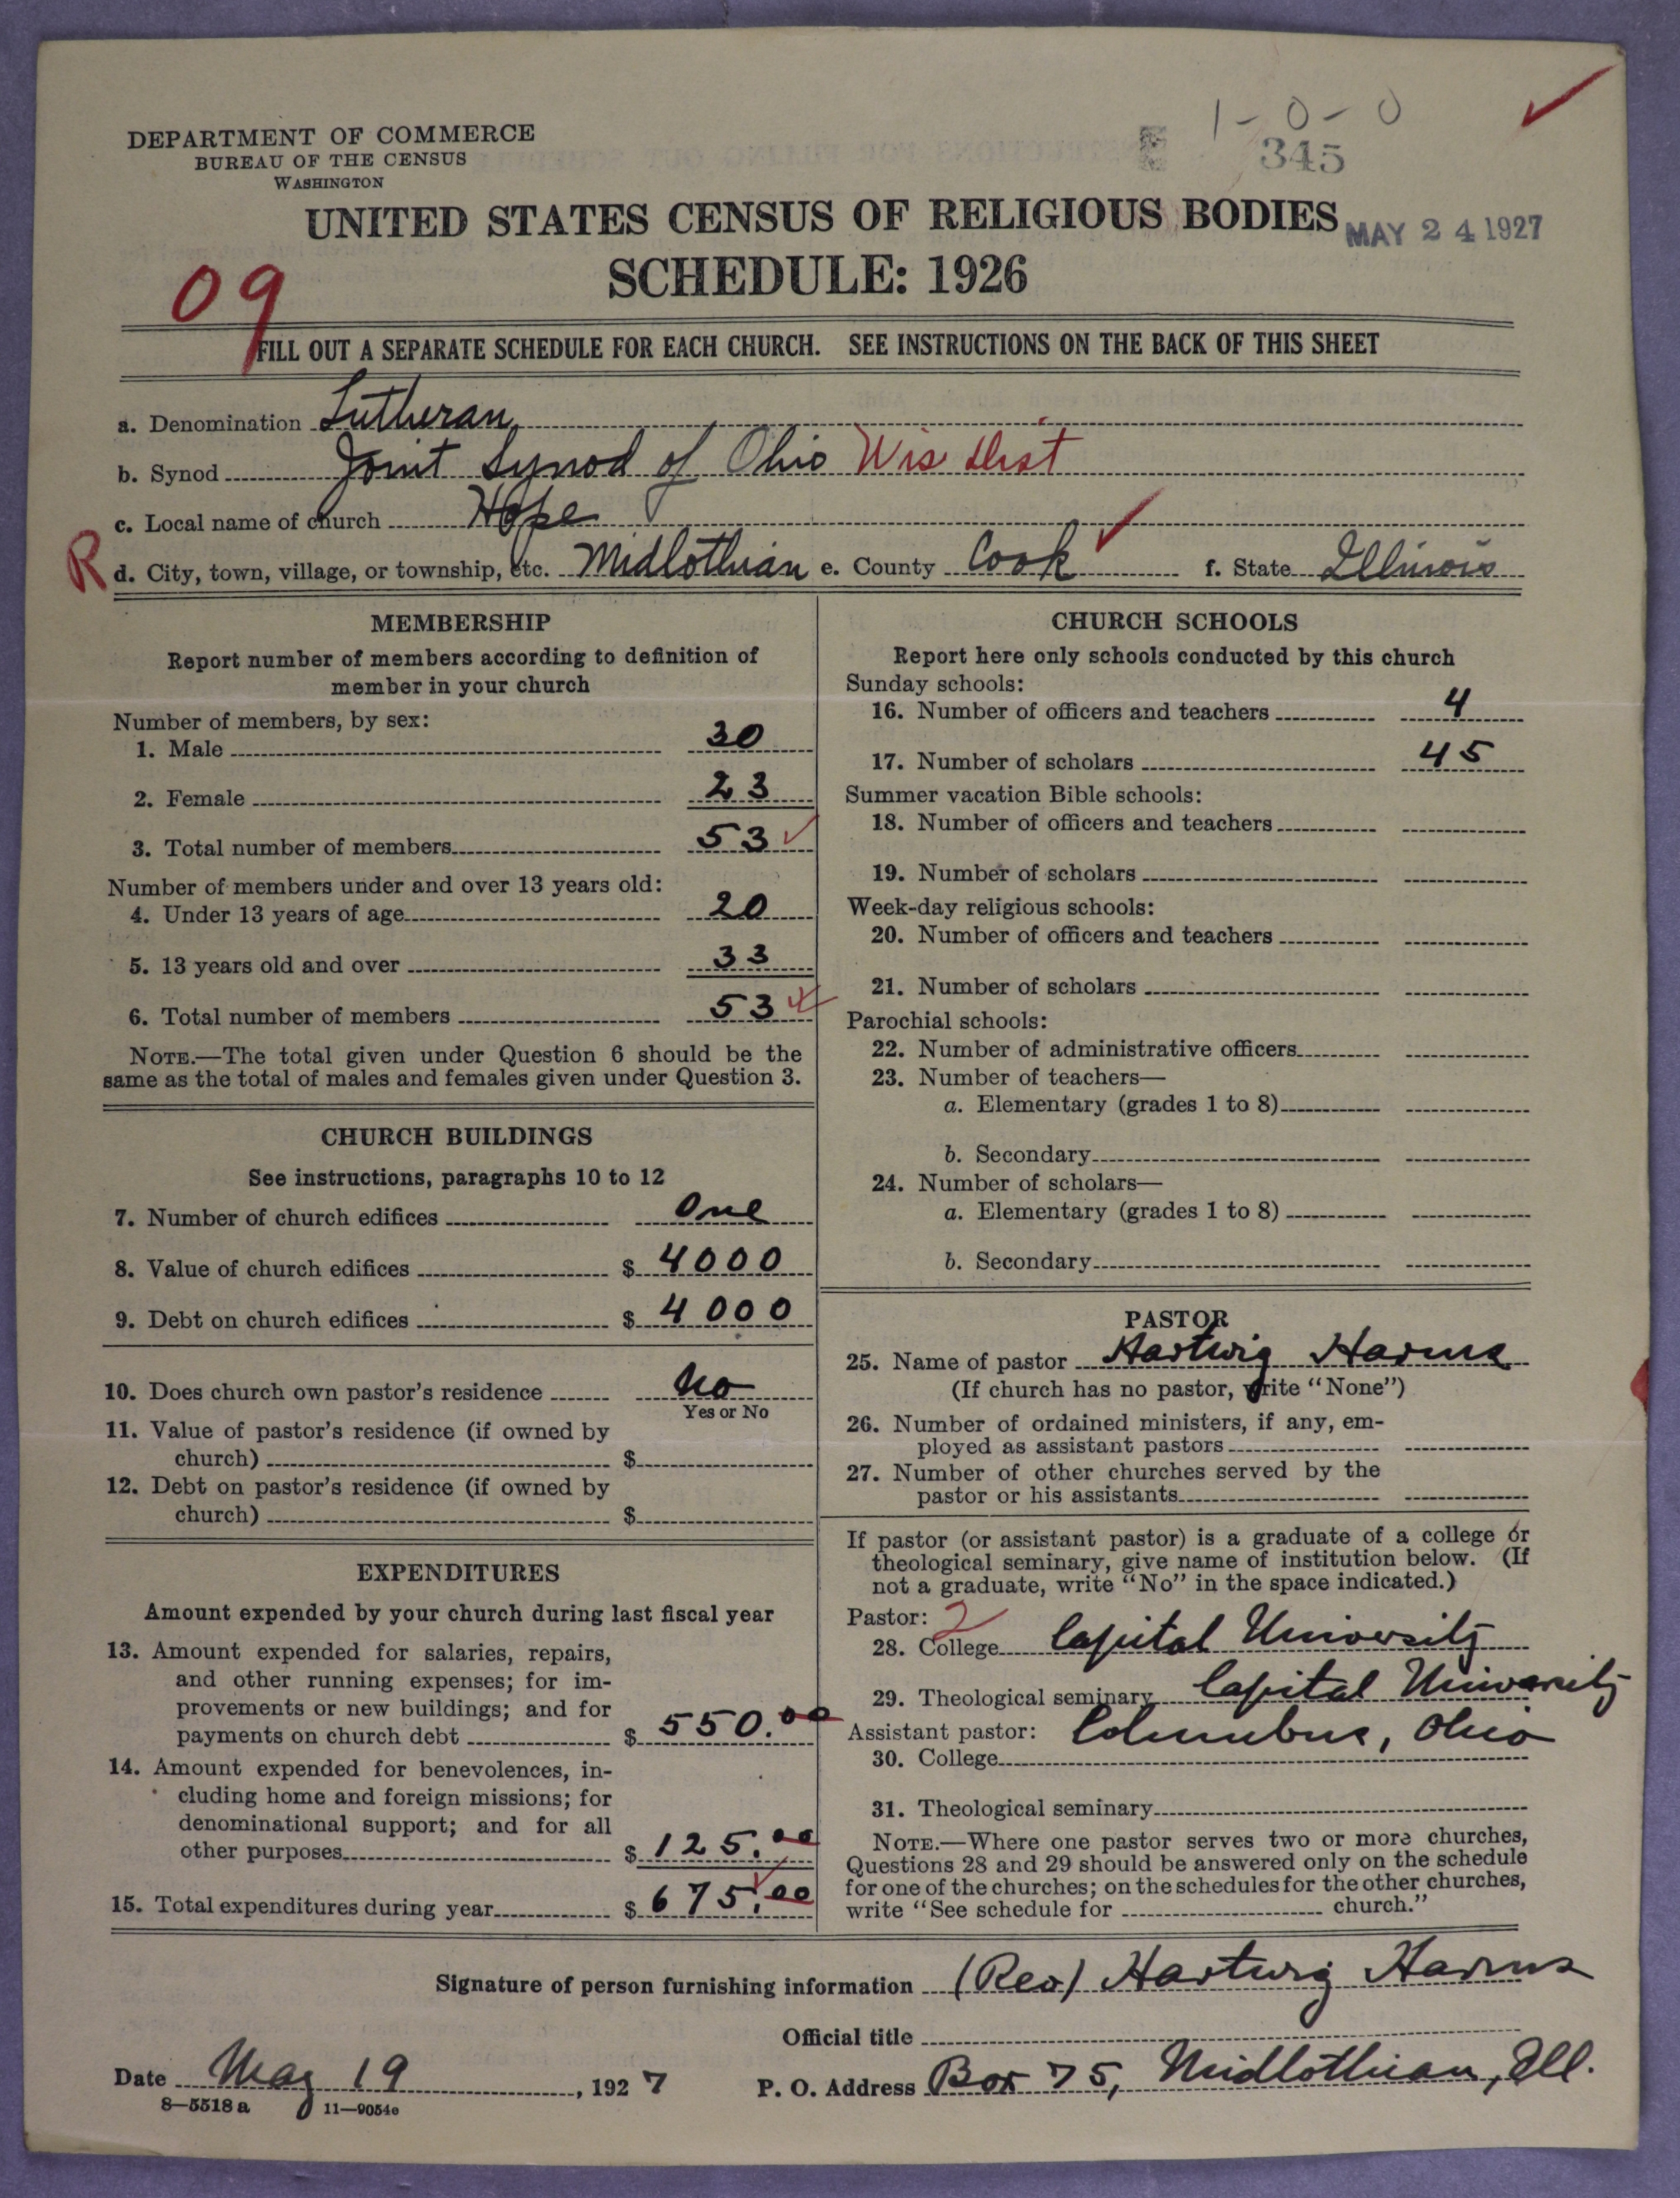 1-0-0
DEPARTMENT OF COMMERCE
BUREAU OF THE CENSUS
WASHINGTON
345
UNITED STATES CENSUS OF RELIGIOUS BODIES
MAY 24 1927
SCHEDULE: 1926
09
FILL OUT A SEPARATE SCHEDULE FOR EACH CHURCH. SEE INSTRUCTIONS ON THE BACK OF THIS SHEET
a. Denomination Lutheran
b. Synod Joint Synod of Ohio Wis Dist
c. Local name of church Hope
R d. City, town, village, or township, etc. Midlothian e. County Cook f. State Illinois
MEMBERSHIP
Report number of members according to definition of
member in your church
Number of members, by sex:
1. Male 30
2. Female 23
3. Total number of members 53
Number of members under and over 13 years old:
4. Under 13 years of age 20
5. 13 years old and over 33
6. Total number of members 53
NOTE.—The total given under Question 6 should be the
same as the total of males and females given under Question 3.
CHURCH BUILDINGS
See instructions, paragraphs 10 to 12
7. Number of church edifices One
8. Value of church edifices $ 4000
9. Debt on church edifices $ 4000
10. Does church own pastor's residence No
Yes or No
11. Value of pastor's residence (if owned by
church) $
12. Debt on pastor's residence (if owned by
church) $
EXPENDITURES
Amount expended by your church during last fiscal year
13. Amount expended for salaries, repairs,
and other running expenses; for im-
provements or new buildings; and for
payments on church debt $ 550.00
14. Amount expended for benevolences, in-
cluding home and foreign missions; for
denominational support; and for all
other purposes $ 125.00
15. Total expenditures during year $ 675.00
CHURCH SCHOOLS
Report here only schools conducted by this church
Sunday schools:
16. Number of officers and teachers 4
17. Number of scholars 45
Summer vacation Bible schools:
18. Number of officers and teachers
19. Number of scholars
Week-day religious schools:
20. Number of officers and teachers
21. Number of scholars
Parochial schools:
22. Number of administrative officers
23. Number of teachers—
a. Elementary (grades 1 to 8)
b. Secondary
24. Number of scholars—
a. Elementary (grades 1 to 8)
b. Secondary
PASTOR
25. Name of pastor Hartwig Harms
(If church has no pastor, write "None")
26. Number of ordained ministers, if any, em-
ployed as assistant pastors
27. Number of other churches served by the
pastor or his assistants
If pastor (or assistant pastor) is a graduate of a college or
theological seminary, give name of institution below. (If
not a graduate, write "No" in the space indicated.)
Pastor: 2
28. College Capital University
29. Theological seminary Capital University
Assistant pastor: Columbus, Ohio
30. College
31. Theological seminary
NOTE.—Where one pastor serves two or more churches,
Questions 28 and 29 should be answered only on the schedule
for one of the churches; on the schedules for the other churches,
write "See schedule for church."
Signature of person furnishing information (Rev) Hartwig Harms
Official title
Date May 19, 1927 P. O. Address Box 75, Midlothian, Ill.
8—5518 a 11—9054e